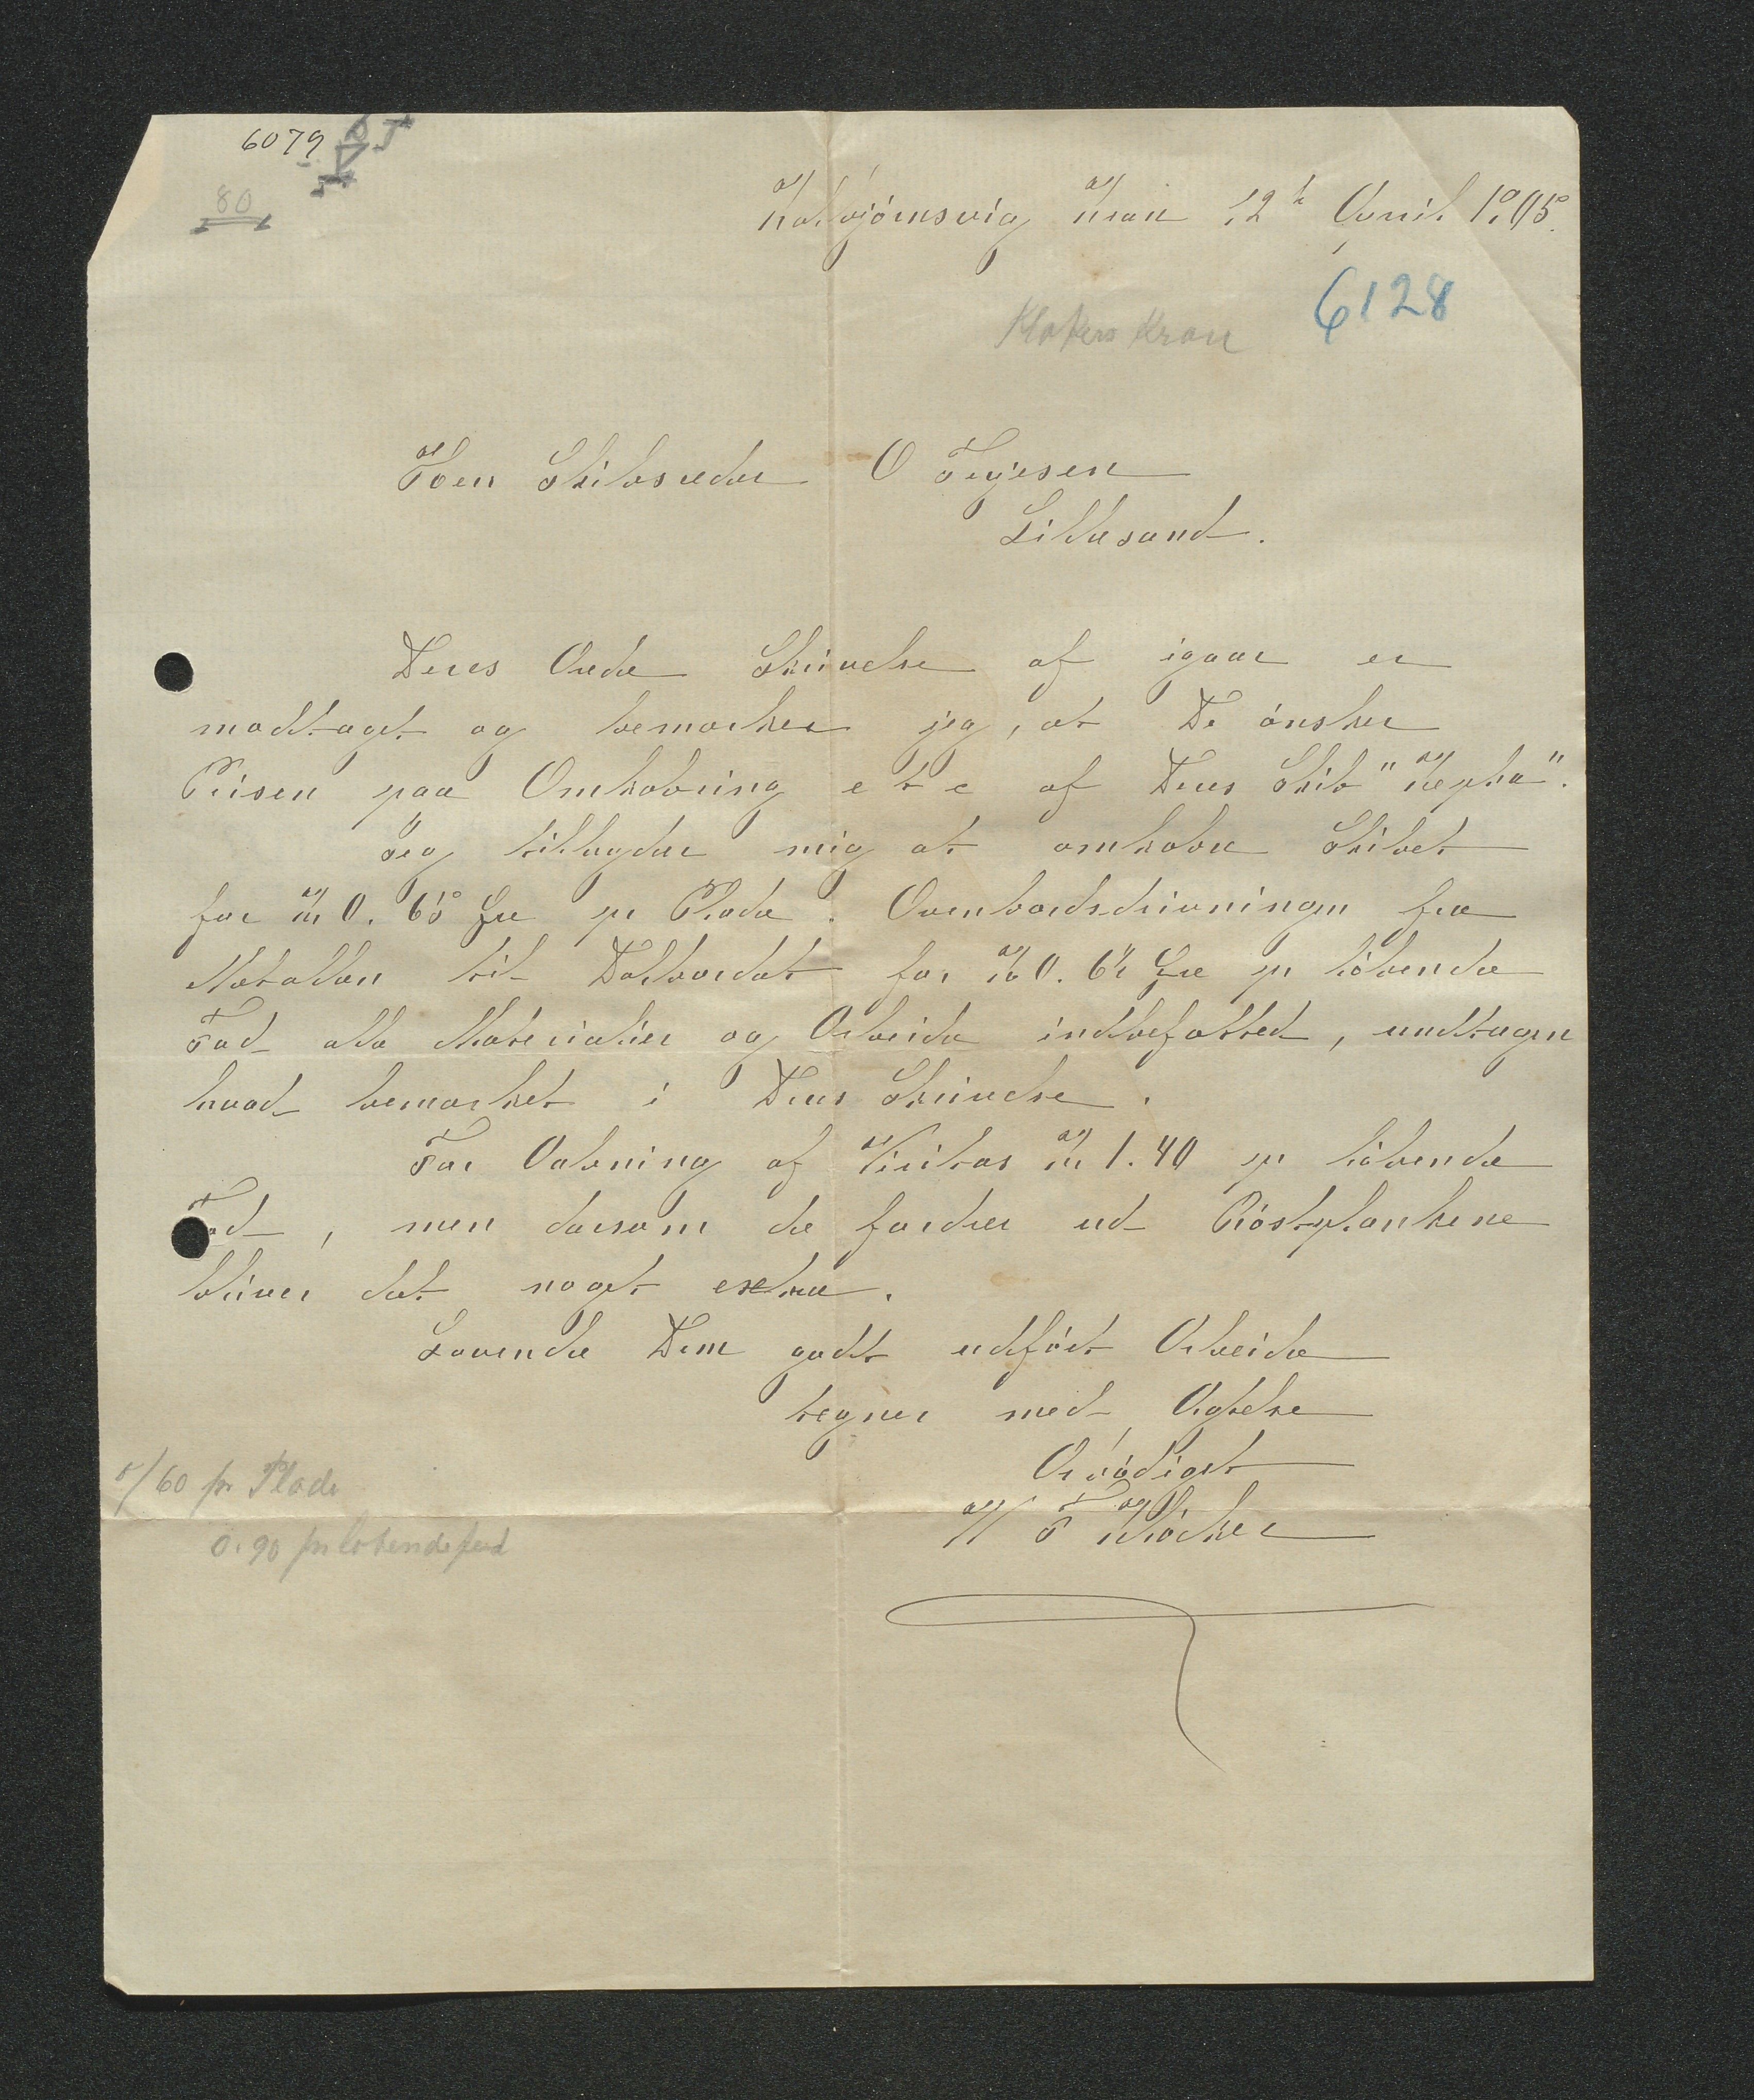 6079
80
Kolbjörnsvig Kran 12te April 1905.
6128
Klokers Kran
Herr Skibsreder O Terjesen
Lillesand.
Deres Ærede Skrivelse af igaar er
modtaget og bemærker jeg, at De önsker
Prisen paa Omkobring etc af Deres Skib "Hepha".
Jeg tilbyder mig at omkobre Skibet
for Kr 0.65 Øre pr Plade. Ovenbordsdrivningen fra
Metallen til Dolbordet for Kr 0.64 Øre pr löbende
Fod alle Materialier og Arbeide indbefattet, undtagen
hvad bemærket i Deres Skrivelse.
For Aabning af Veritas Kr 1.40 pr löbende
Fod, men dersom de fordrer ud Röstplankene
bliver det noget extra.
Lovende Dem godt udfört Arbeide
tegner med Agtelse
Ærbödigst
H F Klöcker
/60 pr Plade
0.90 pr lobende fod